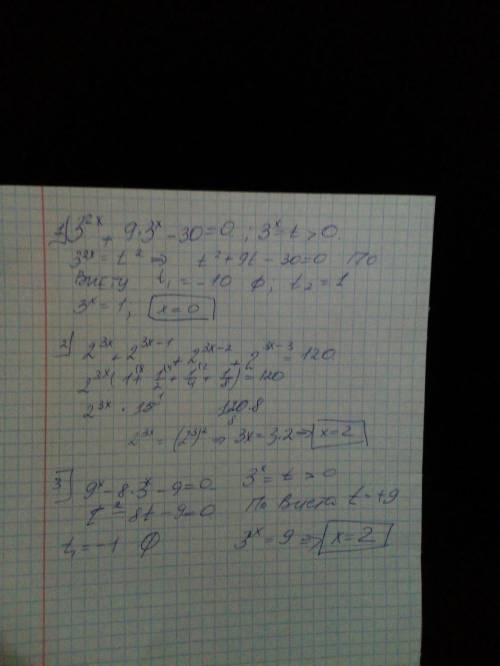 1) 3^2x + 9·3^x − 30 = 0 ; 3^x = t > 0.
3^2x = t^2 ⇒ t^2 + 9t − 30 = 0 По
Виету t₁ = −10 ∅, t₂ = 1
3^x = 1, x = 0
2) 2^3x + 2^3x−1 + 2^3x−2 + 2^3x−3 = 120
2^3x (1 + 1/2 + 1/4 + 1/8) = 120
2^3x · 15 120·8
2^3x = (2^3)^2 ⇒ 3x = 3·2 ⇒ x = 2
3) 9^x − 8·3^x − 9 = 0 3^x = t > 0
t^2 − 8t − 9 = 0 По Виета t = +9
t₁ = −1 ∅ 3^x = 9 ⇒ x = 2